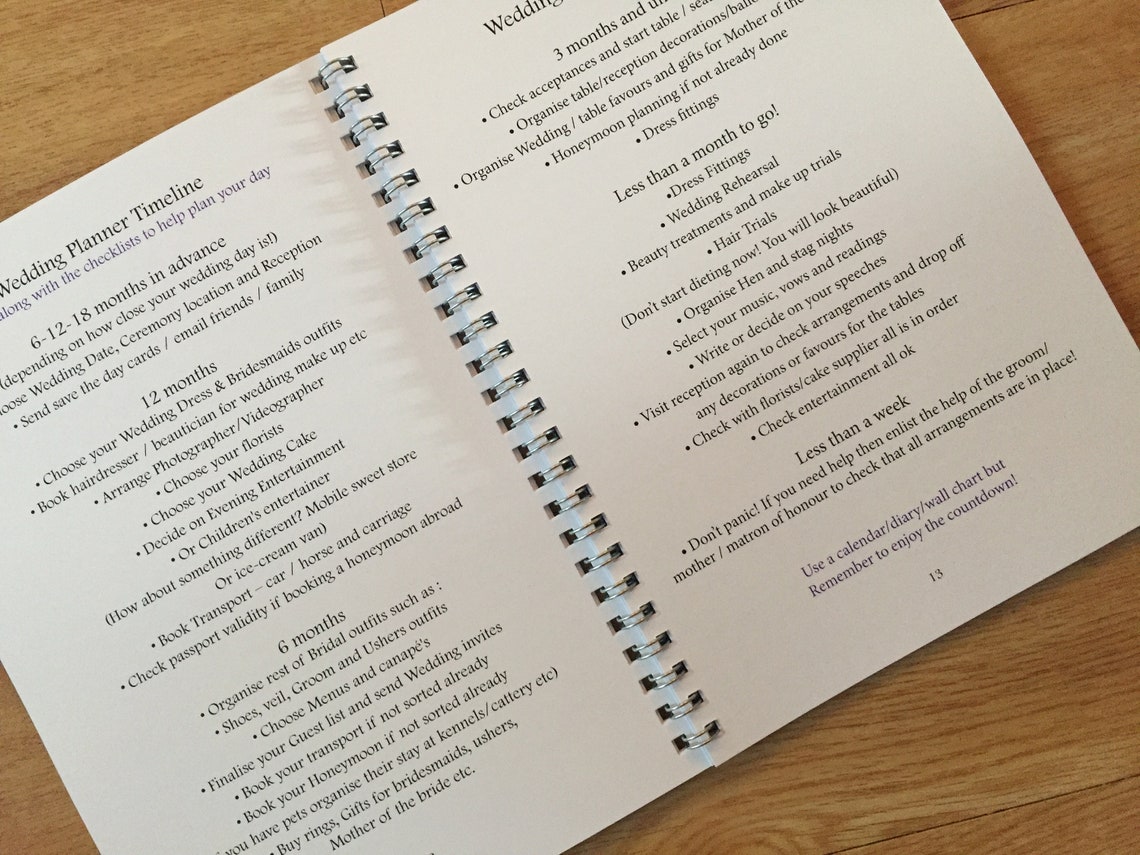 Wedding Planner Timeline
along with the checklists to help plan your day
6-12-18 months in advance
(depending on how close your wedding day is!)
Wedding Date, Ceremony location and Reception
• Send save the day cards / email friends / family
12 months
• Choose your Wedding Dress & Bridesmaids outfits
• Book hairdresser / beautician for wedding make up etc
• Arrange Photographer/Videographer
• Choose your florists
• Choose your Wedding Cake
• Decide on Evening Entertainment
• Or Children's entertainer
(How about something different? Mobile sweet store
Or ice-cream van)
• Book Transport – car / horse and carriage
• Check passport validity if booking a honeymoon abroad
6 months
• Organise rest of Bridal outfits such as :
• Shoes, veil, Groom and Ushers outfits
• Choose Menus and canapé's
• Finalise your Guest list and send Wedding invites
• Book your transport if not sorted already
• Book your Honeymoon if not sorted already
you have pets organise their stay at kennels/cattery etc)
• Buy rings, Gifts for bridesmaids, ushers,
Mother of the bride etc.
Wedding
3 months and
• Check acceptances and start table /
• Organise table/reception decorations/
• Organise Wedding / table favours and gifts for Mother of the
• Honeymoon planning if not already done
• Dress fittings
Less than a month to go!
• Dress Fittings
• Wedding Rehearsal
• Beauty treatments and make up trials
• Hair Trials
(Don't start dieting now! You will look beautiful)
• Organise Hen and stag nights
• Select your music, vows and readings
• Write or decide on your speeches
• Visit reception again to check arrangements and drop off
any decorations or favours for the tables
• Check with florists/cake supplier all is in order
• Check entertainment all ok
Less than a week
• Don't panic! If you need help then enlist the help of the groom/
mother / matron of honour to check that all arrangements are in place!
Use a calendar/diary/wall chart but
Remember to enjoy the countdown!
13